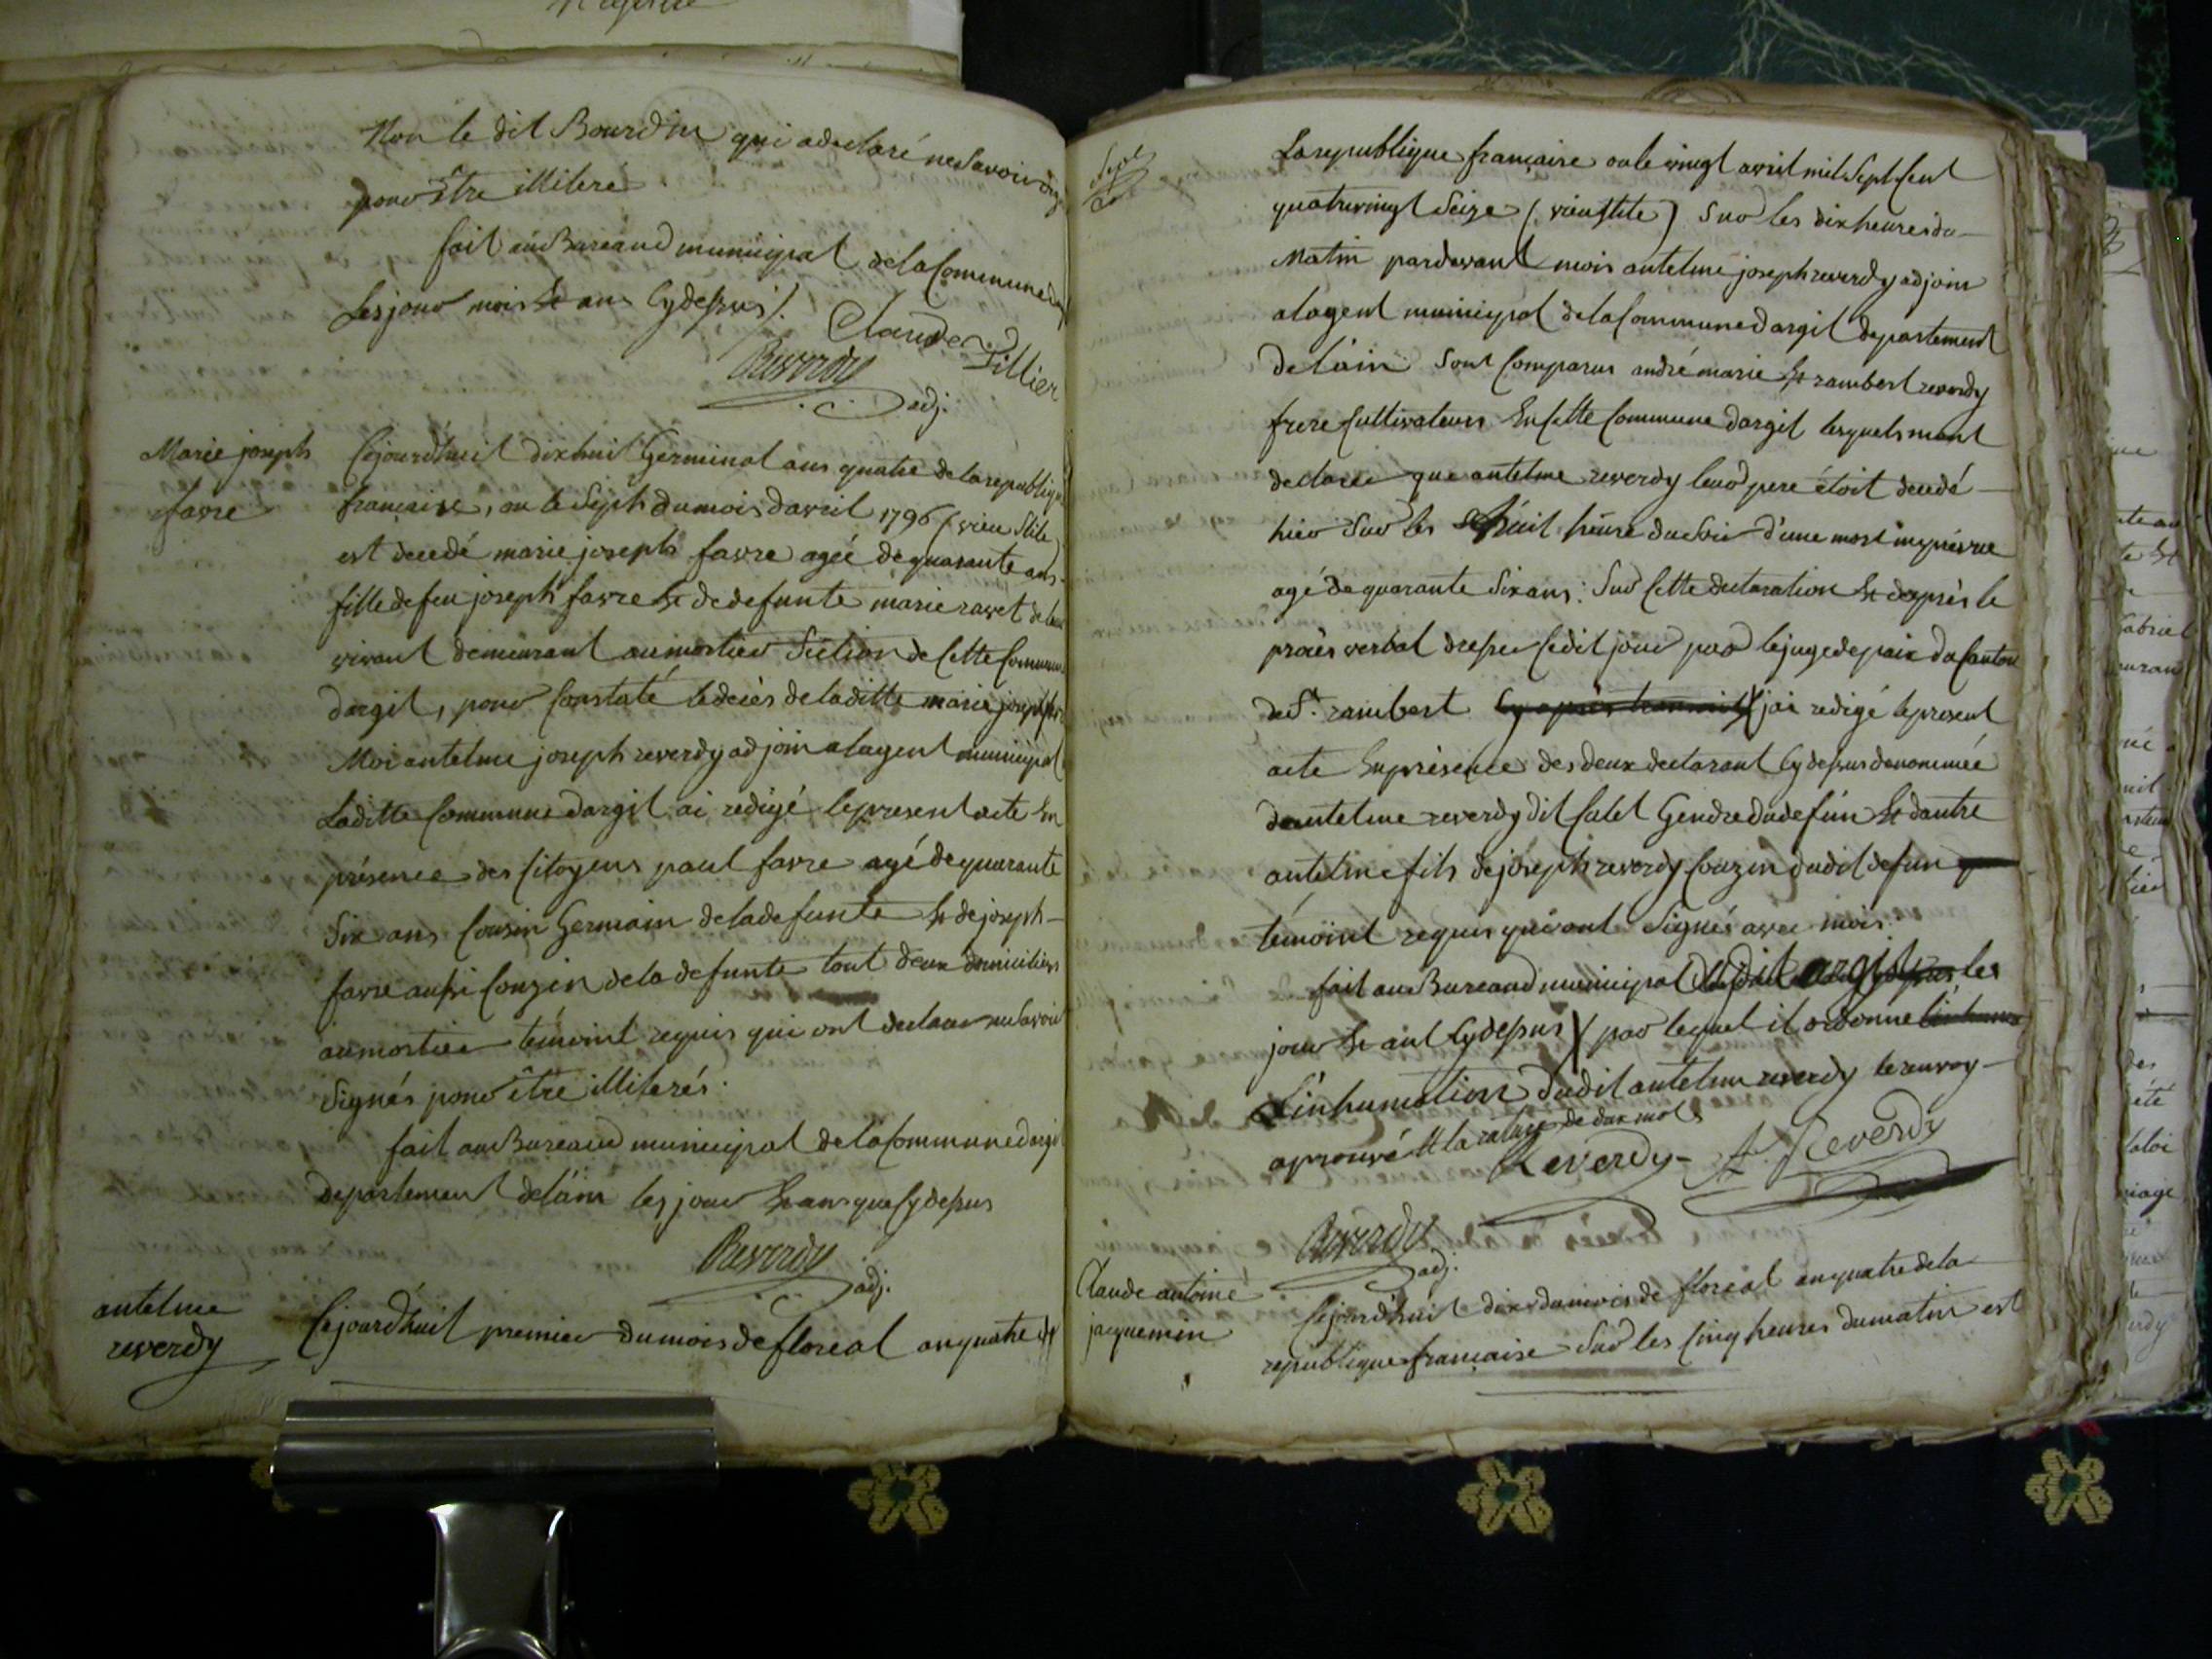 Non le dit Bourdin qui a declaré ne Savoir
pour être illiteré
fait au Bureaud municipal de la Commune
les jour mois et ans Cy dessus /.
Claude Tillier
Reverdy
adj.
Marie joseph
favre
Cejourd'huit dixhuit Germinal ans quatre de la republique
française, ou le Sept du mois davril 1796 (vieu Stile)
est decedé marie joseph favre agée de quarante ans
fille de feu joseph favre et de defunte marie ravet de leur
vivant demeurant au mortier Section de Cette Commune
dargit, pour Constaté le decès de laditte marie joseph
Moi antelme joseph reverdy adjoin a lagent municipal
Laditte Commune dargit ai redigé le present acte En
présence des Citoyens paul favre agé de quarante
Six ans Cousin Germain de la defunte et de joseph
favre aussi Couzin de la defunte tout deux domiciliers
au mortier témoint requis qui ont declarer ne Savoir
Signés pour être illiterés.
fait au Bureaud municipal de la Commune dargit
departement de láin les jour et ans que Cy dessus
Reverdy
adj.
antelme
reverdy
Cejourd'huit premier du mois de floreal an quatre de
La republique française ou le vingt avril mil Sept Cent
quatrevingt Seize (vieu Stile) Sur les dix heures du
Matin pardevant mois antelme joseph reverdy adjoin
a lagent municipal de la Commune dargit departement
de láin Sont Comparus andré marie et rambert reverdy
frere Cultivateurs En Cette Commune dargit lesquels mont
declarer que antelme reverdy leur pere étoit decedé
hier Sur les huit heure du Soir d'une mort imprévue
agé de quarante Six ans: Sur Cette declaration et daprès le
procès verbal dresser Cedit jour par le juge de paix du Canton
de St. rambert jai redigé le present
acte En présence des deux declarant Cy dessus denommée
dantelme reverdy dit Catet Gendre du defun et dautre
antelme fils de joseph reverdy Couzin dudit defun
témoint requis qui ont Signés avec mois.
fait au Bureaud municipal dudit argit les
jour et ant Cy dessus X par lequel il ordonne
L'inhumation dudit antelme reverdy le renvoy
aprouvé et la rature de dux mot
Reverdy A. Reverdy
Reverdy
adj.
Claude antoine
jacquemin
Cejourd'huit dix du mois de floreal an quatre de la
republique française Sur les Cinq heures du matin est